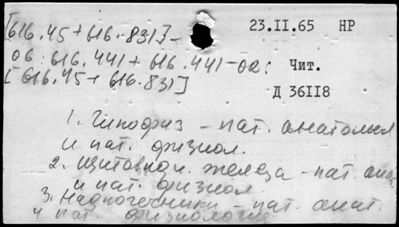 [616.45+616.831]-
23.II.65 НР
06:616.441+616.441-02:
[616.45+616.831]
Чит.
Д 36118
1. Гипофиз - пат. анатомия
и пат. физиол.
2. Щитовидн. железа - пат. ана
и пат. физиол.
3. Надпочечники - пат. анат.
и пат. физиология